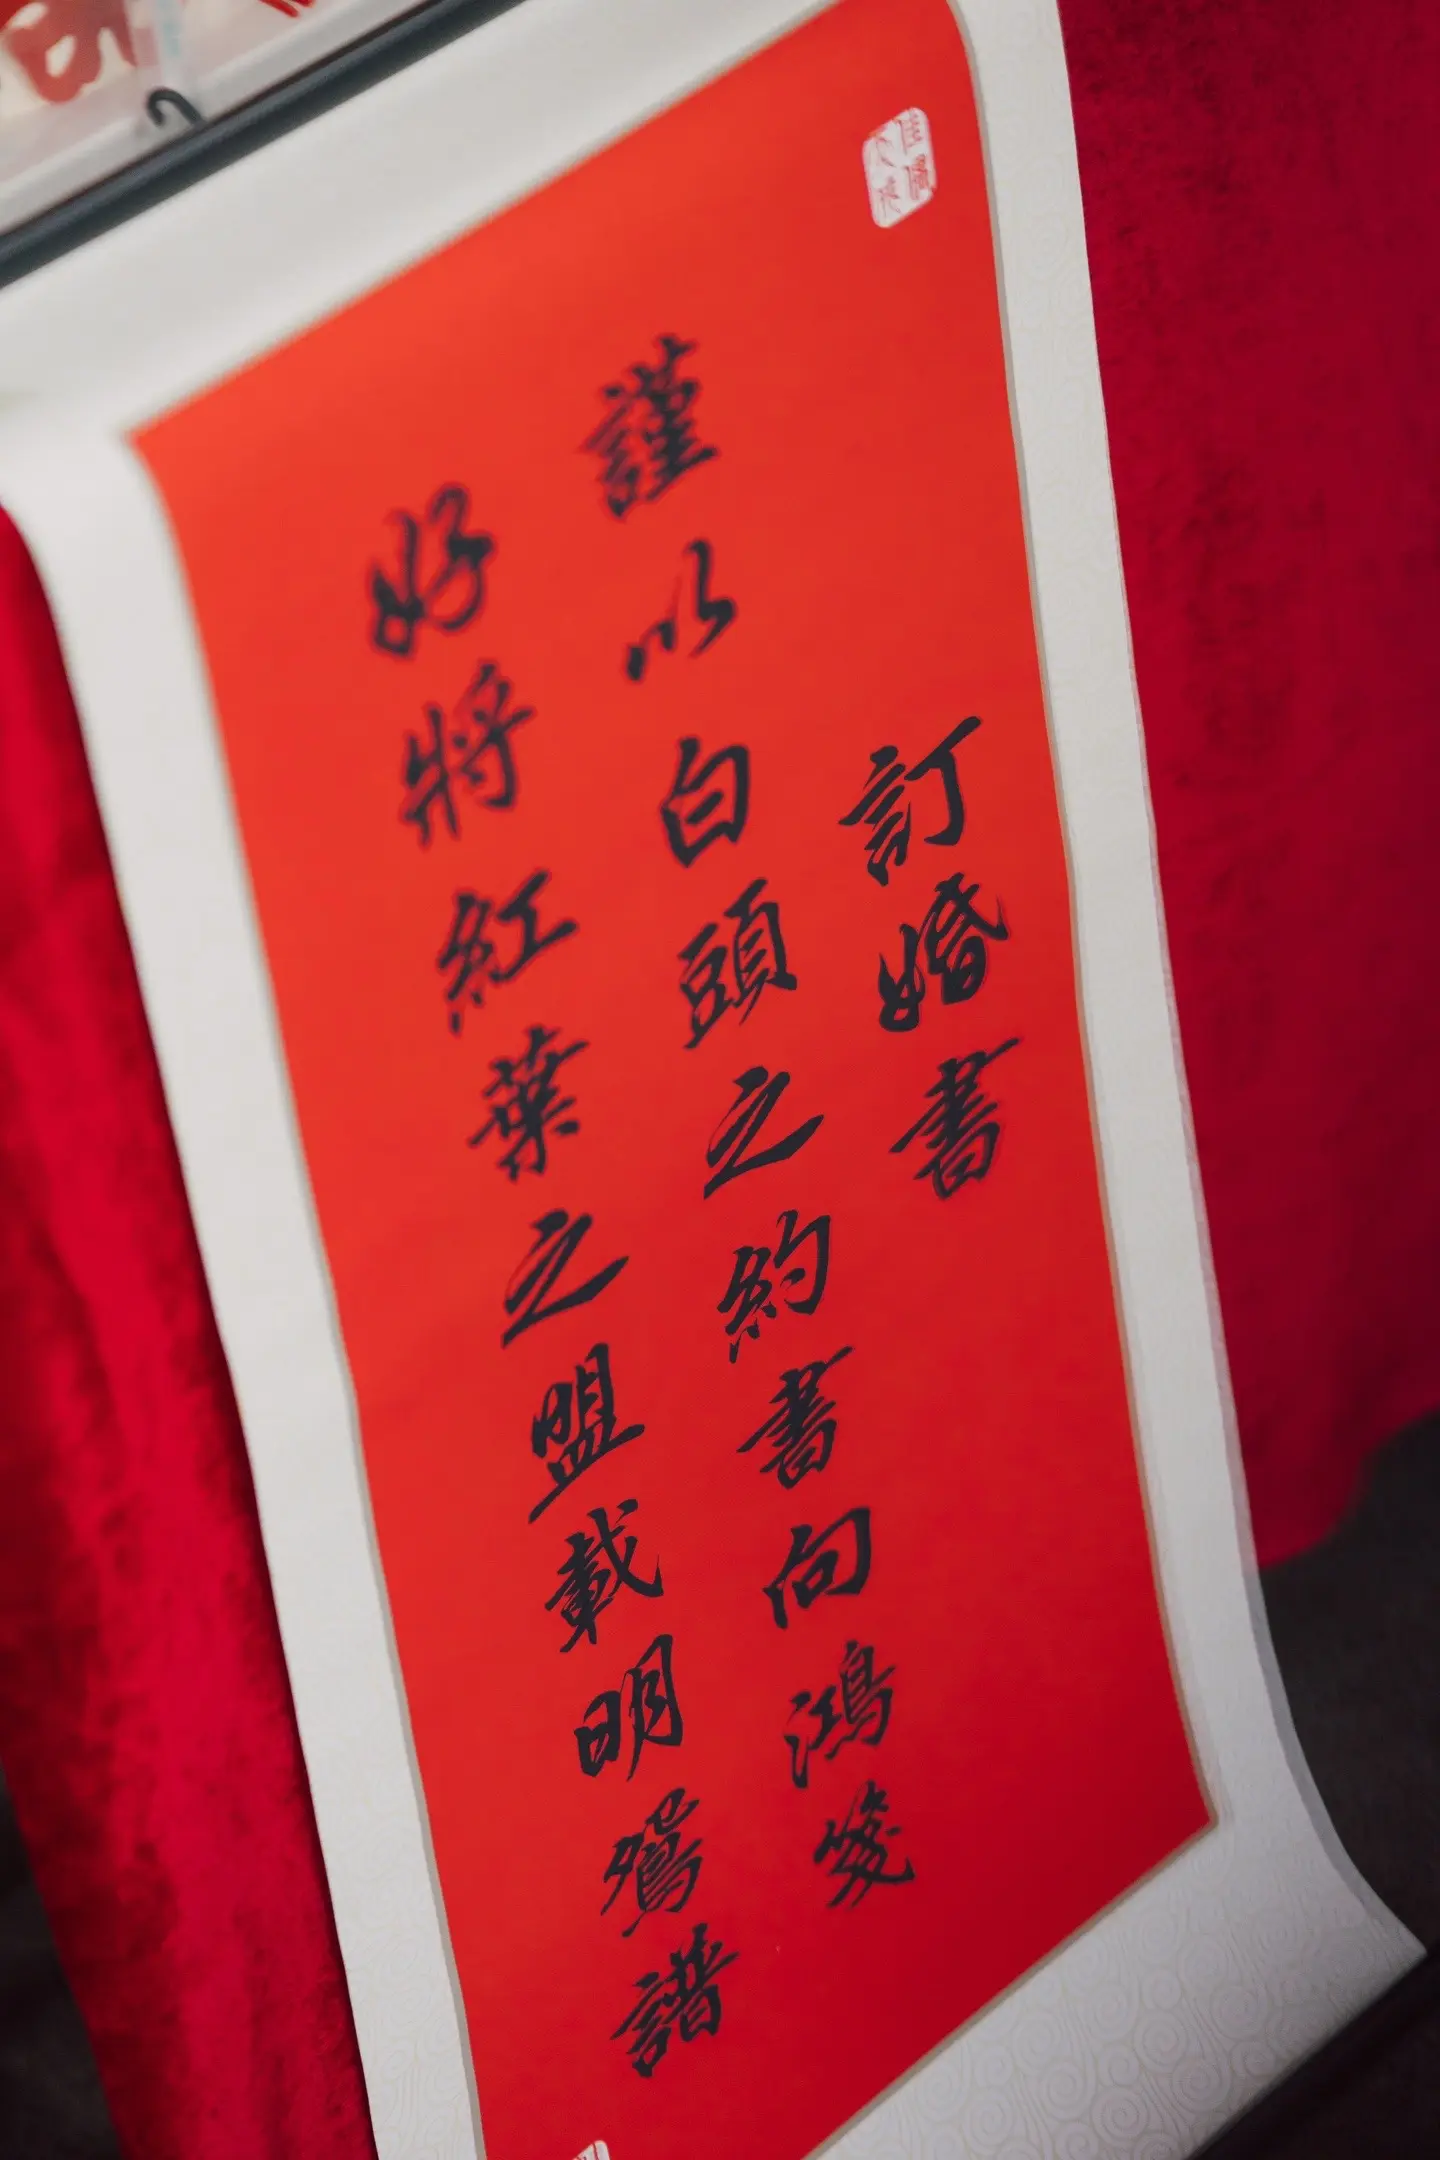 訂婚書
謹以白頭之約書向鴻箋
好將紅葉之盟載明鴛譜